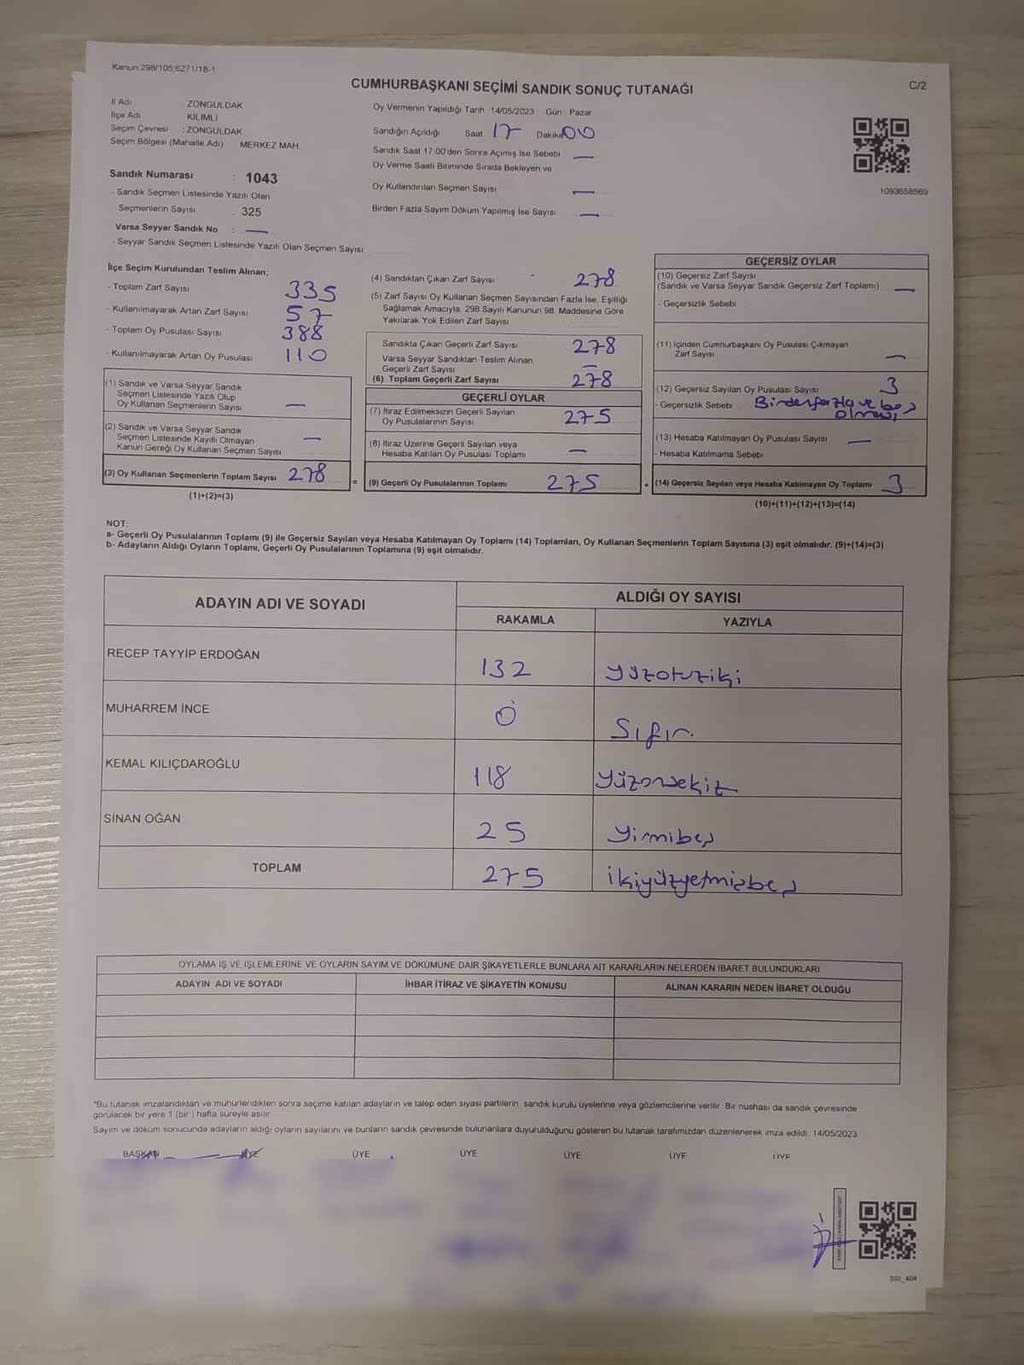 Kanun:298/105;6271/18-1
CUMHURBAŞKANI SEÇİMİ SANDIK SONUÇ TUTANAĞI
C/2
İl Adı ZONGULDAK
İlçe Adı KİLİMLİ
Seçim Çevresi : ZONGULDAK
Seçim Bölgesi (Mahalle Adı) MERKEZ MAH
Sandık Numarası : 1043
- Sandık Seçmen Listesinde Yazılı Olan
Seçmenlerin Sayısı 325
Varsa Seyyar Sandık No : —
- Seyyar Sandık Seçmen Listesinde Yazılı Olan Seçmen Sayısı
Oy Vermenin Yapıldığı Tarih 14/05/2023 Gün : Pazar
Sandığın Açıldığı Saat 17 Dakika 00
Sandık Saat 17:00'den Sonra Açılmış İse Sebebi —
Oy Verme Saati Bitiminde Sırada Bekleyen ve
Oy Kullandırılan Seçmen Sayısı —
Birden Fazla Sayım Döküm Yapılmış İse Sayısı —
1093658569
İlçe Seçim Kurulundan Teslim Alınan;
- Toplam Zarf Sayısı 335
- Kullanılmayarak Artan Zarf Sayısı 57
- Toplam Oy Pusulası Sayısı 388
- Kullanılmayarak Artan Oy Pusulası 110
(1) Sandık ve Varsa Seyyar Sandık
Seçmen Listesinde Yazılı Olup
Oy Kullanan Seçmenlerin Sayısı —
(2) Sandık ve Varsa Seyyar Sandık
Seçmen Listesinde Kayıtlı Olmayan
Kanun Gereği Oy Kullanan Seçmen Sayısı —
(3) Oy Kullanan Seçmenlerin Toplam Sayısı 278
(1)+(2)=(3)
(4) Sandıktan Çıkan Zarf Sayısı 278
(5) Zarf Sayısı Oy Kullanan Seçmen Sayısından Fazla İse, Eşitliği
Sağlamak Amacıyla, 298 Sayılı Kanunun 98. Maddesine Göre
Yakılarak Yok Edilen Zarf Sayısı
Sandıkta Çıkan Geçerli Zarf Sayısı 278
Varsa Seyyar Sandıktan Teslim Alınan
Geçerli Zarf Sayısı —
(6) Toplam Geçerli Zarf Sayısı 278
GEÇERLİ OYLAR
(7) İtiraz Edilmeksizin Geçerli Sayılan
Oy Pusulalarının Sayısı 275
(8) İtiraz Üzerine Geçerli Sayılan veya
Hesaba Katılan Oy Pusulası Toplamı —
=
(9) Geçerli Oy Pusulalarının Toplamı 275
+
GEÇERSİZ OYLAR
(10) Geçersiz Zarf Sayısı
(Sandık ve Varsa Seyyar Sandık Geçersiz Zarf Toplamı) —
- Geçersizlik Sebebi
(11) İçinden Cumhurbaşkanı Oy Pusulası Çıkmayan
Zarf Sayısı —
(12) Geçersiz Sayılan Oy Pusulası Sayısı 3
- Geçersizlik Sebebi Birden fazla ve boş
olması
(13) Hesaba Katılmayan Oy Pusulası Sayısı —
- Hesaba Katılmama Sebebi
(14) Geçersiz Sayılan veya Hesaba Katılmayan Oy Toplamı 3
(10)+(11)+(12)+(13)=(14)
NOT:
a- Geçerli Oy Pusulalarının Toplamı (9) ile Geçersiz Sayılan veya Hesaba Katılmayan Oy Toplamı (14) Toplamları, Oy Kullanan Seçmenlerin Toplam Sayısına (3) eşit olmalıdır. (9)+(14)=(3)
b- Adayların Aldığı Oyların Toplamı, Geçerli Oy Pusulalarının Toplamına (9) eşit olmalıdır.
ADAYIN ADI VE SOYADI
ALDIĞI OY SAYISI
RAKAMLA YAZIYLA
RECEP TAYYİP ERDOĞAN 132 yüzotuziki
MUHARREM İNCE 0 Sıfır
KEMAL KILIÇDAROĞLU 118 yüzonsekiz
SİNAN OĞAN 25 yirmibeş
TOPLAM 275 ikiyüzyetmişbeş
OYLAMA İŞ VE İŞLEMLERİNE VE OYLARIN SAYIM VE DÖKÜMÜNE DAİR ŞİKAYETLERLE BUNLARA AİT KARARLARIN NELERDEN İBARET BULUNDUKLARI
ADAYIN ADI VE SOYADI İHBAR İTİRAZ VE ŞİKAYETİN KONUSU ALINAN KARARIN NEDEN İBARET OLDUĞU
*Bu tutanak imzalandıktan ve mühürlendikten sonra seçime katılan adayların ve talep eden siyasi partilerin, sandık kurulu üyelerine veya gözlemcilerine verilir. Bir nüshası da sandık çevresinde
görülecek bir yere 1 (bir ) hafta süreyle asılır.
Sayım ve döküm sonucunda adayların aldığı oyların sayılarını ve bunların sandık çevresinde bulunanlara duyurulduğunu gösteren bu tutanak tarafımızdan düzenlenerek imza edildi. 14/05/2023
BAŞKAN ÜYE ÜYE ÜYE ÜYE ÜYE ÜYE